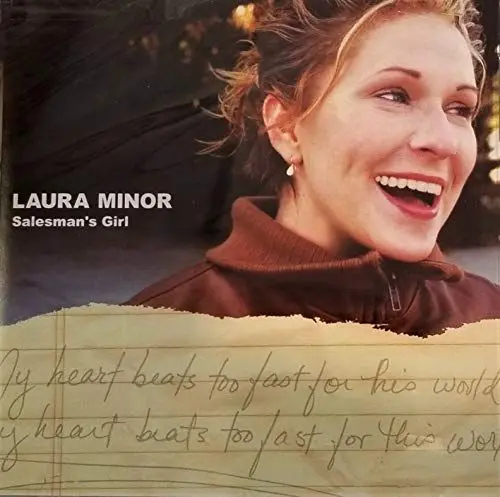 LAURA MINOR
Salesman's Girl
My heart beats too fast for his world
my heart beats too fast for this wor